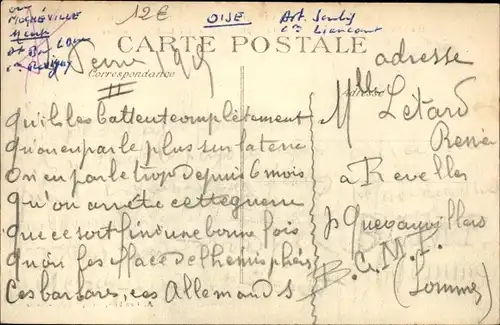 ou
MOGNÉVILLE
Meuse
12€
OISE
Art. Senlis
Cton Liancourt
CARTE POSTALE
Correspondance
Adresse
II
Qu'ils les battent complètement
Qu'on en parle plus sur la terre
On en parle trop depuis 6 mois
Qu'on arrête cette guerre
Que ce soit fini d'une bonne fois
Qu'on les efface de l'hémisphère
Ces barbares, ces Allemands
adresse
Mlle Létard
Renée
à Revelles
p Quevauvillers
B.C.M.P.
(Somme)